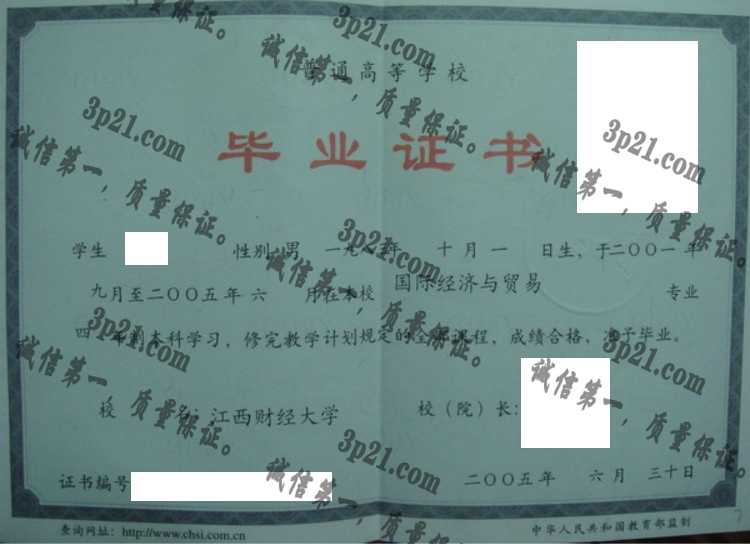 普通高等学校
毕业证书
学生 性别 男 一九八三年 十月一日生，于二〇〇一年
九月至二〇〇五年六月在本校 国际经济与贸易 专业
四年制本科学习，修完教学计划规定的全部课程，成绩合格，准予毕业。
校名：江西财经大学 校（院）长：
证书编号 二〇〇五年 六月 三十日
查询网址：http://www.chsi.com.cn 中华人民共和国教育部监制
3p21.com
诚信第一，质量保证。
3p21.com
诚信第一，质量保证。
3p21.com
诚信第一，质量保证。
3p21.com
诚信第一，质量保证。
3p21.com
诚信第一，质量保证。
3p21.com
诚信第一，质量保证。
3p21.com
诚信第一，
质量保证。